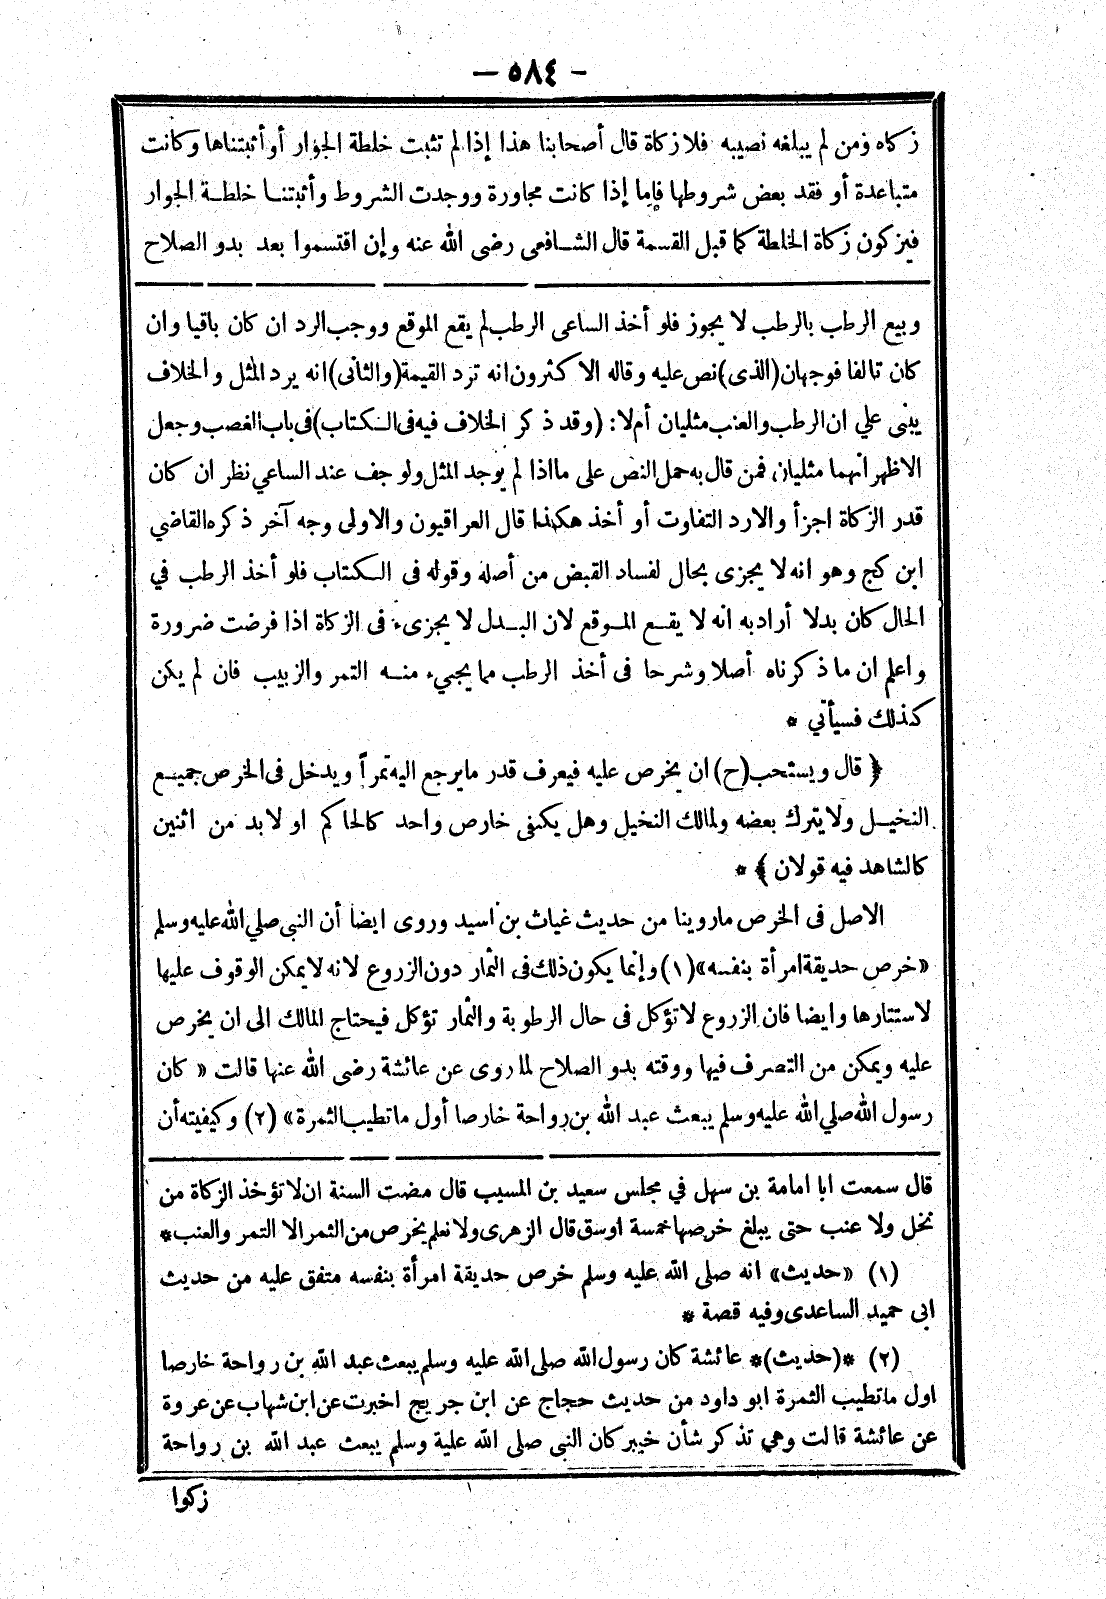 - ٥٨٤ -
زكاه ومن لم يبلغه نصيبه فلا زكاة قال أصحابنا هذا إذا لم تثبت خلطة الجوار أو أثبتناها وكانت
متباعدة أو فقد بعض شروطها فإما إذا كانت مجاورة ووجدت الشروط وأثبتنا خلطة الجوار
فيزكون زكاة الخلطة كما قبل القسمة قال الشافعى رضى الله عنه وإن اقتسموا بعد بدو الصلاح
وبيع الرطب بالرطب لا يجوز فلو أخذ الساعى الرطب لم يقع الموقع ووجب الرد ان كان باقيا وان
كان تالفا فوجهان (الذى) نص عليه وقاله الاكثرون انه ترد القيمة (والثانى) انه يرد المثل والخلاف
يبنى علي ان الرطب والعنب مثليان أم لا: (وقد ذكر الخلاف فيه فى الكتاب) فى باب الغصب وجعل
الاظهر انهما مثليان فمن قال به حمل النص على ما اذا لم يوجد المثل ولو جف عند الساعي نظر ان كان
قدر الزكاة اجزأ والا رد التفاوت أو أخذ هكذا قال العراقيون والاولى وجه آخر ذكره القاضي
ابن كج وهو انه لا يجزى بحال لفساد القبض من أصله وقوله فى الكتاب فلو أخذ الرطب في
الحال كان بدلا أراد به انه لا يقع الموقع لان البدل لا يجزىء فى الزكاة اذا فرضت ضرورة
واعلم ان ما ذكرناه أصلا وشرحا فى أخذ الرطب مما يجيء منه التمر والزبيب فان لم يكن
كذلك فسيأتي *
﴿ قال ويستحب (ح) ان يخرص عليه فيعرف قدر ما يرجع اليه تمرا ويدخل فى الخرص جميع
النخيل ولا يترك بعضه ولمالك النخيل وهل يكفى خارص واحد كالحاكم او لا بد من اثنين
كالشاهد فيه قولان ﴾ *
الاصل فى الخرص ما روينا من حديث غياث بن اسيد وروى ايضا أن النبي صلي الله عليه وسلم
«خرص حديقة امرأة بنفسه» (١) وإنما يكون ذلك فى الثمار دون الزروع لانه لا يمكن الوقوف عليها
لاستتارها وايضا فان الزروع لا تؤكل فى حال الرطوبة والثمار تؤكل فيحتاج المالك الى ان يخرص
عليه ويمكن من التصرف فيها ووقته بدو الصلاح لما روى عن عائشة رضى الله عنها قالت « كان
رسول الله صلي الله عليه وسلم يبعث عبد الله بن رواحة خارصا أول ما تطيب الثمرة» (٢) وكيفيته أن
قال سمعت ابا امامة بن سهل في مجلس سعيد بن المسيب قال مضت السنة ان لا تؤخذ الزكاة من
نخل ولا عنب حتى يبلغ خرصها خمسة اوسق قال الزهرى ولا نعلم يخرص من الثمر الا التمر والعنب *
(١) «حديث» انه صلى الله عليه وسلم خرص حديقة امرأة بنفسه متفق عليه من حديث
ابى حميد الساعدى وفيه قصة *
(٢) *(حديث)* عائشة كان رسول الله صلى الله عليه وسلم يبعث عبد الله بن رواحة خارصا
اول ما تطيب الثمرة ابو داود من حديث حجاج عن ابن جريج اخبرت عن ابن شهاب عن عروة
عن عائشة قالت وهي تذكر شأن خيبر كان النبى صلى الله علية وسلم يبعث عبد الله بن رواحة
زكوا